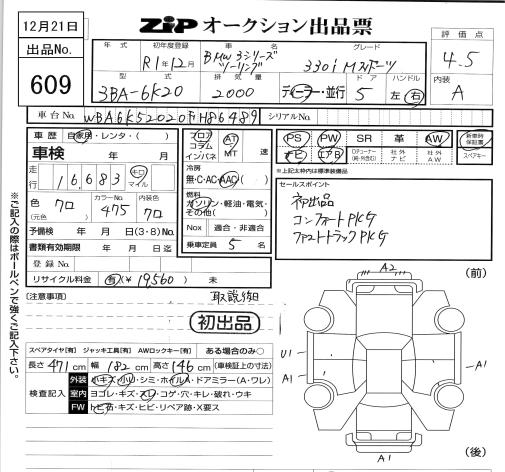 12月21日
ZIP オークション出品票
評価点
4.5
出品No.
609
年式
初年度登録
車名
グレード
R1年12月
BMW 3シリーズ
ツーリング
330i Mスポーツ
型式
排気量
ドア
ハンドル
内装
3BA-6K20
2000
ディーラー・並行
5
左・右
A
車台No.
WBA6K52020FH86489
シリアルNo.
車歴
自家用・レンタ・( )
車検 年 月
走行
16,683
キロ
マイル
色
クロ
(元色)
カラーNo.
475
内装色
クロ
予備検 年 月 日(3・8)No.
書類有効期限 年 月 日迄
登録No.
リサイクル料金
有(¥ 19,560 ) 未
フロア
コラム
インパネ
AT
MT
速
冷房
無・C・AC・AAC
燃料
ガソリン・軽油・電気・
その他( )
Nox 適合・非適合
乗車定員 5 名
PS
PW
SR
革
AW
新車時
保証書
ナビ
エアB
社外
ナビ
社外
AW
スペアキー
※上記太枠内は標準装備品
セールスポイント
初出品
コンフォートPKG
ファストトラックPKG
(注意事項)
取説 後日
初出品
スペアタイヤ[有] ジャッキ工具[有] AWロックキー[有] ある場合のみ○
長さ 471 cm 幅 182 cm 高さ 146 cm (車検証の寸法)
検査記入
外装 小キズ・小U・シミ・ホイルA・ドアミラー(A・ワレ)
室内 ヨゴレ・キズ・スレ・コゲ・穴・キレ・破れ・ウキ
FW トビ石・キズ・ヒビ・リペア跡・X要ス
※ご記入の際はボールペンで強くご記入下さい。
A2
(前)
U1
A1
A1
A1
(後)